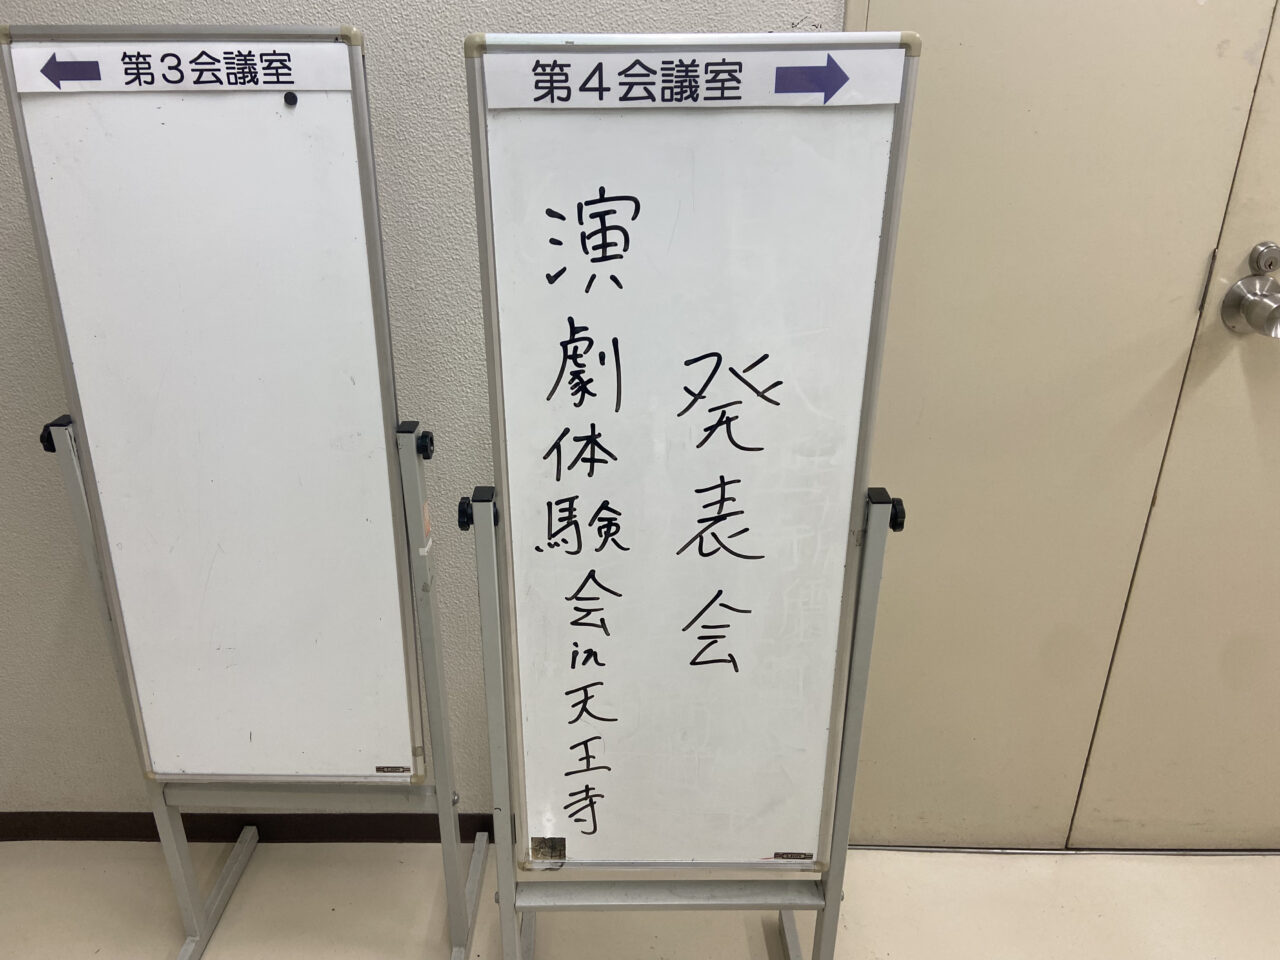 第3会議室
第4会議室
発表会
演劇体験会in天王寺